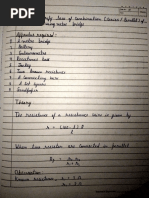 law of Combination (Series / Parallel) of
meter bridge
Apparatus required :
1. A meter bridge
2. Battery
3. Galvanometer
4. Resistance box
5. Jockey
6. Two known resistance
7. connecting wire
8. A set square
9. Sandpaper
Theory
The resistance of a resistance wire is given by
r = (100 - l) R
l
When two resistor are connected in parallel
Rp = R1 R2
R1 + R2
Observation